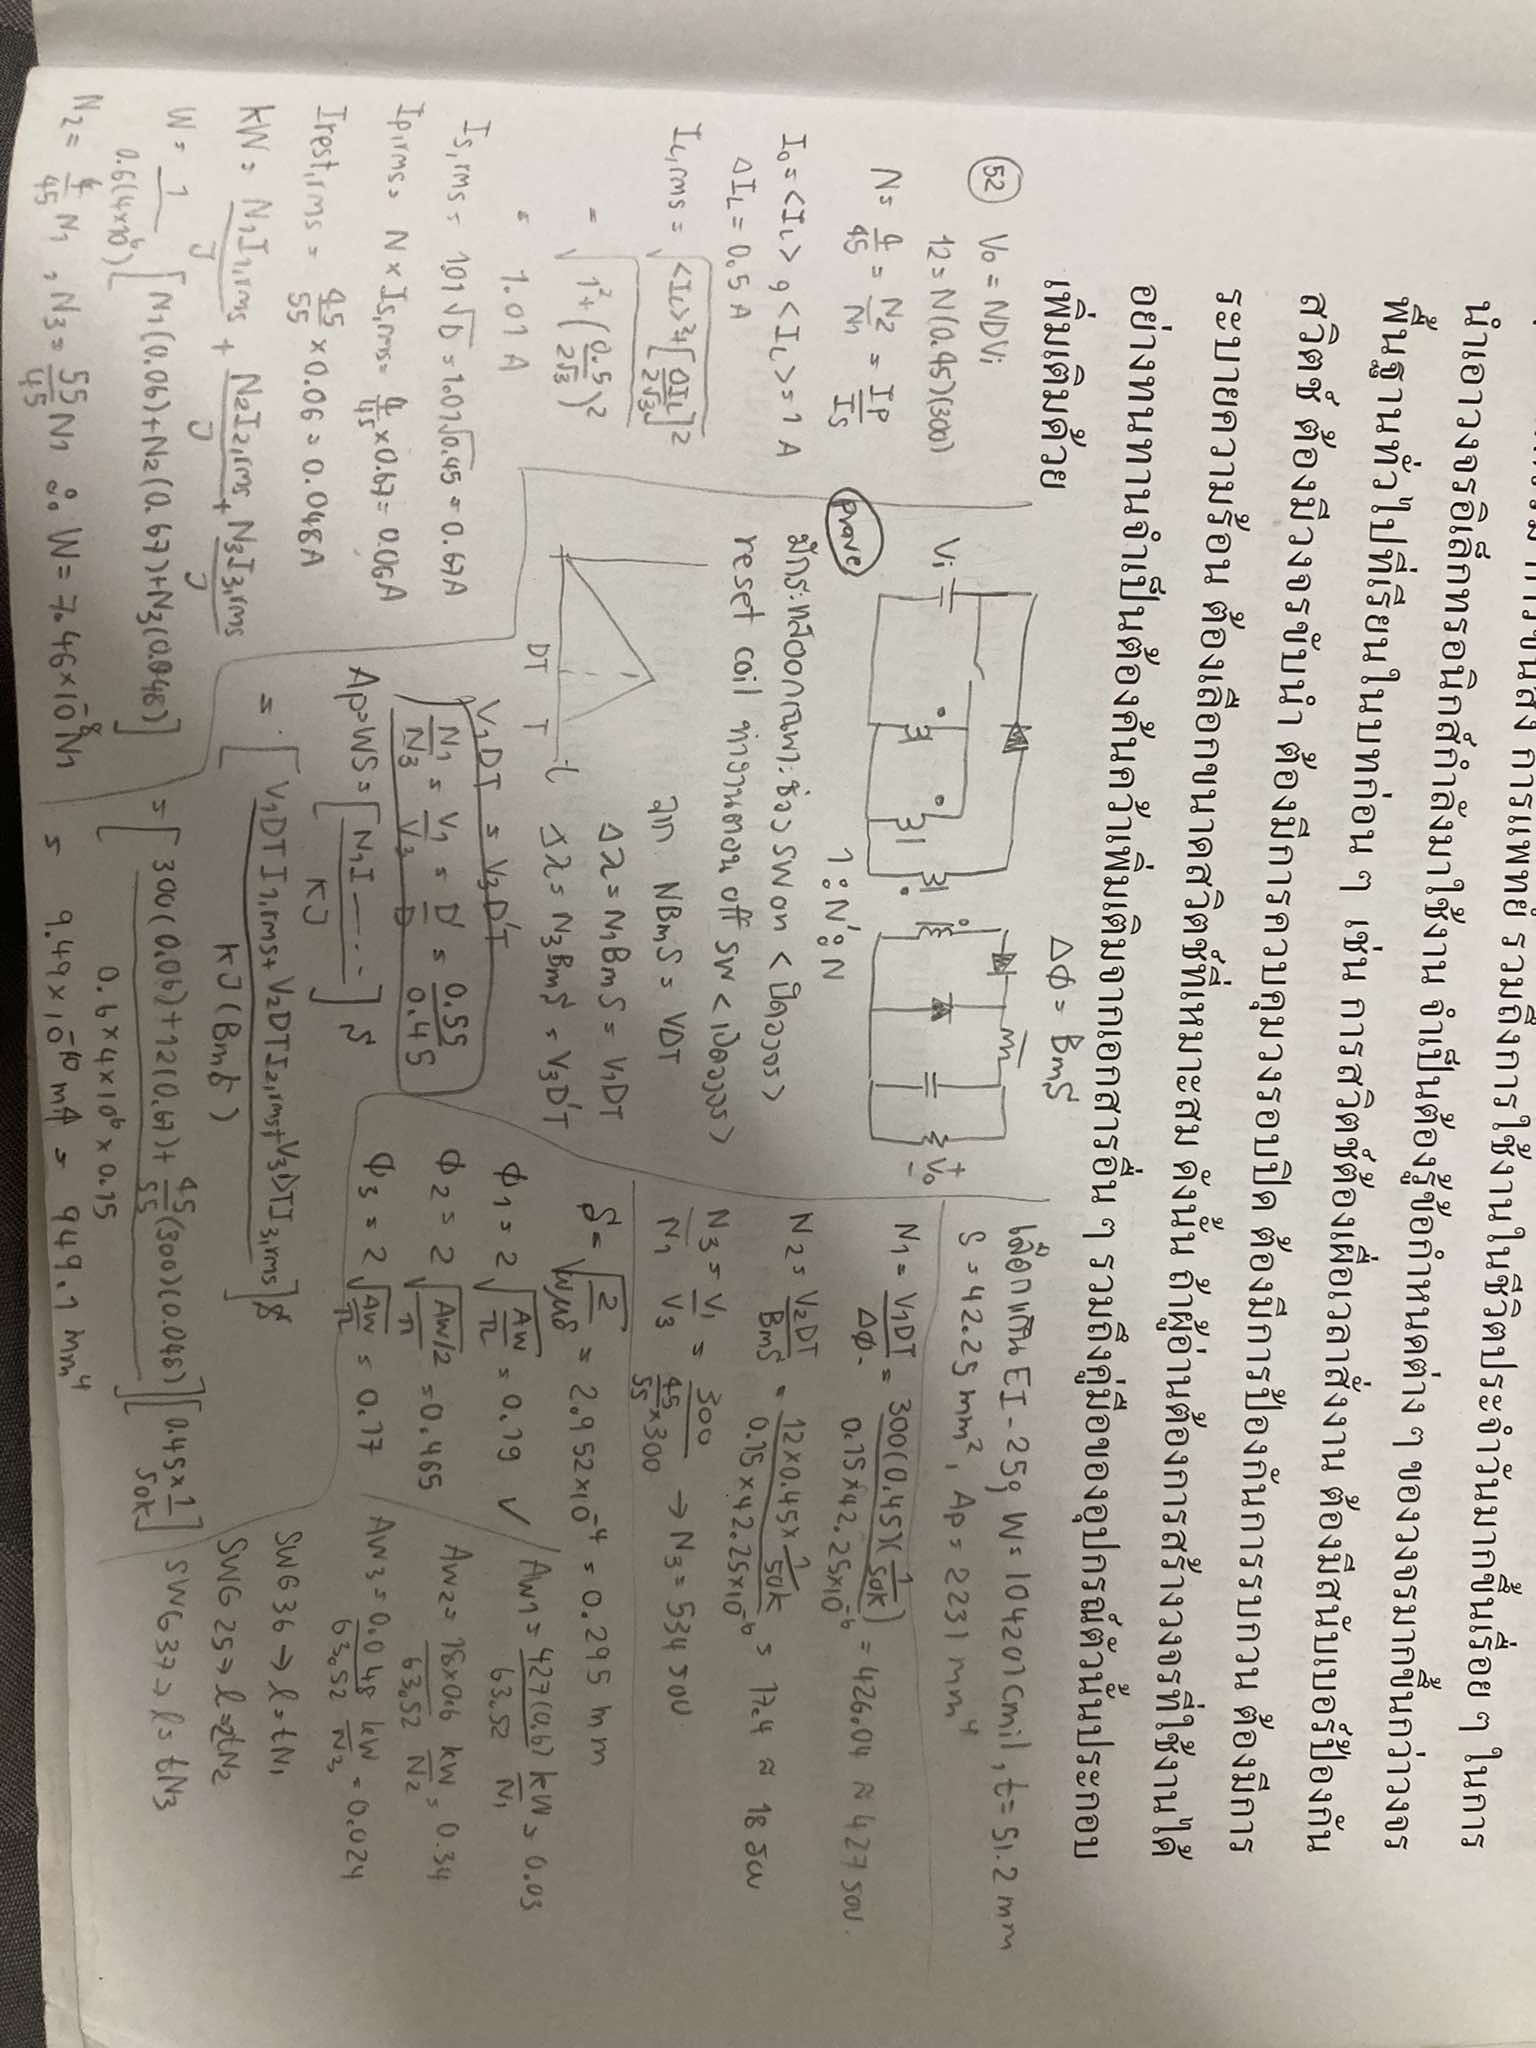 การขนส่ง การแพทย์ รวมถึงการใช้งานในชีวิตประจำวันมากขึ้นเรื่อย ๆ ในการ
นำเอาวงจรอิเล็กทรอนิกส์กำลังมาใช้งาน จำเป็นต้องรู้ข้อกำหนดต่าง ๆ ของวงจรมากขึ้นกว่าวงจร
พื้นฐานทั่วไปที่เรียนในบทก่อน ๆ เช่น การสวิตช์ต้องเผื่อเวลาสั่งงาน ต้องมีสนับเบอร์ป้องกัน
สวิตช์ ต้องมีวงจรขับนำ ต้องมีการควบคุมวงรอบปิด ต้องมีการป้องกันการรบกวน ต้องมีการ
ระบายความร้อน ต้องเลือกขนาดสวิตช์ที่เหมาะสม ดังนั้น ถ้าผู้อ่านต้องการสร้างวงจรที่ใช้งานได้
อย่างทนทานจำเป็นต้องค้นคว้าเพิ่มเติมจากเอกสารอื่น ๆ รวมถึงคู่มือของอุปกรณ์ตัวนั้นประกอบ
เพิ่มเติมด้วย
52 Vo = NDVi
12 = N(0.45)(300)
N = 4/45 = N2/N1 = IP/IS
Io = <IL> , <IL> = 1 A
ΔIL = 0.5 A
IL,rms = √(<IL>² + [ΔIL/2√3]²)
= √(1² + (0.5/2√3)²)
= 1.01 A
Is,rms = 1.01√D = 1.01√0.45 = 0.67A
Ip,rms = N × Is,rms = 4/45 × 0.67 = 0.06A
Irest,rms = 45/55 × 0.06 = 0.048A
kW = N1I1,rms/J + N2I2,rms/J + N3I3,rms/J
W = 1/0.6(4×10⁶) [N1(0.06)+N2(0.67)+N3(0.048)]
N2 = 4/45 N1 , N3 = 55/45 N1 ∴ W = 7.46×10⁻⁸N1
Δφ = BmS
Vi
+ Vo -
1:N':N
prove
มีกระแสออกเฉพาะช่วง SW on <ปิดวงจร>
reset coil ทำงานตอน off SW <เปิดวงจร>
DT T t
จาก NBmS = VDT
Δλ = N1BmS = V1DT
Δλ = N3BmS = V3D'T
V1DT = V3D'T
N1/N3 = V1/V3 = D'/D = 0.55/0.45
Ap = WS = [N1I ----/KJ] S
= [V1DTI1,rms + V2DTI2,rms + V3DTI3,rms / KJ(BmS)] S
= [300(0.06)+12(0.67)+45/55(300)(0.048) / 0.6×4×10⁶×0.15] [0.45×1/50K]
= 9.49×10⁻¹⁰ m4 = 949.1 mm⁴
เลือกแกน EI-25, W = 104201 Cmil, t = 51.2 mm
S = 42.25 mm², Ap = 2231 mm⁴
N1 = V1DT/Δφ = 300(0.45)(1/50K)/0.15×42.25×10⁻⁶ = 426.04 ≈ 427 รอบ.
N2 = V2DT/BmS = 12×0.45×1/50K/0.15×42.25×10⁻⁶ = 17.4 ≈ 18 รอบ
N3/N1 = V1/V3 = 300/(45/55×300) → N3 = 534 รอบ
δ = √(2/ωμδ) = 2.952×10⁻⁴ = 0.295 mm
Φ1 = 2√(AW/π) = 0.19 ✓
Φ2 = 2√(AW/2/π) = 0.465
Φ3 = 2√(AW/π) = 0.17
AW1 = 427(0.6)/63.52 kW/N1 = 0.03
AW2 = 18×0.6/63.52 kW/N2 = 0.34
AW3 = 0.048/63.52 kW/N3 = 0.024
SWG 36 → l = tN1
SWG 25 → l = 2tN2
SWG 37 → l = tN3